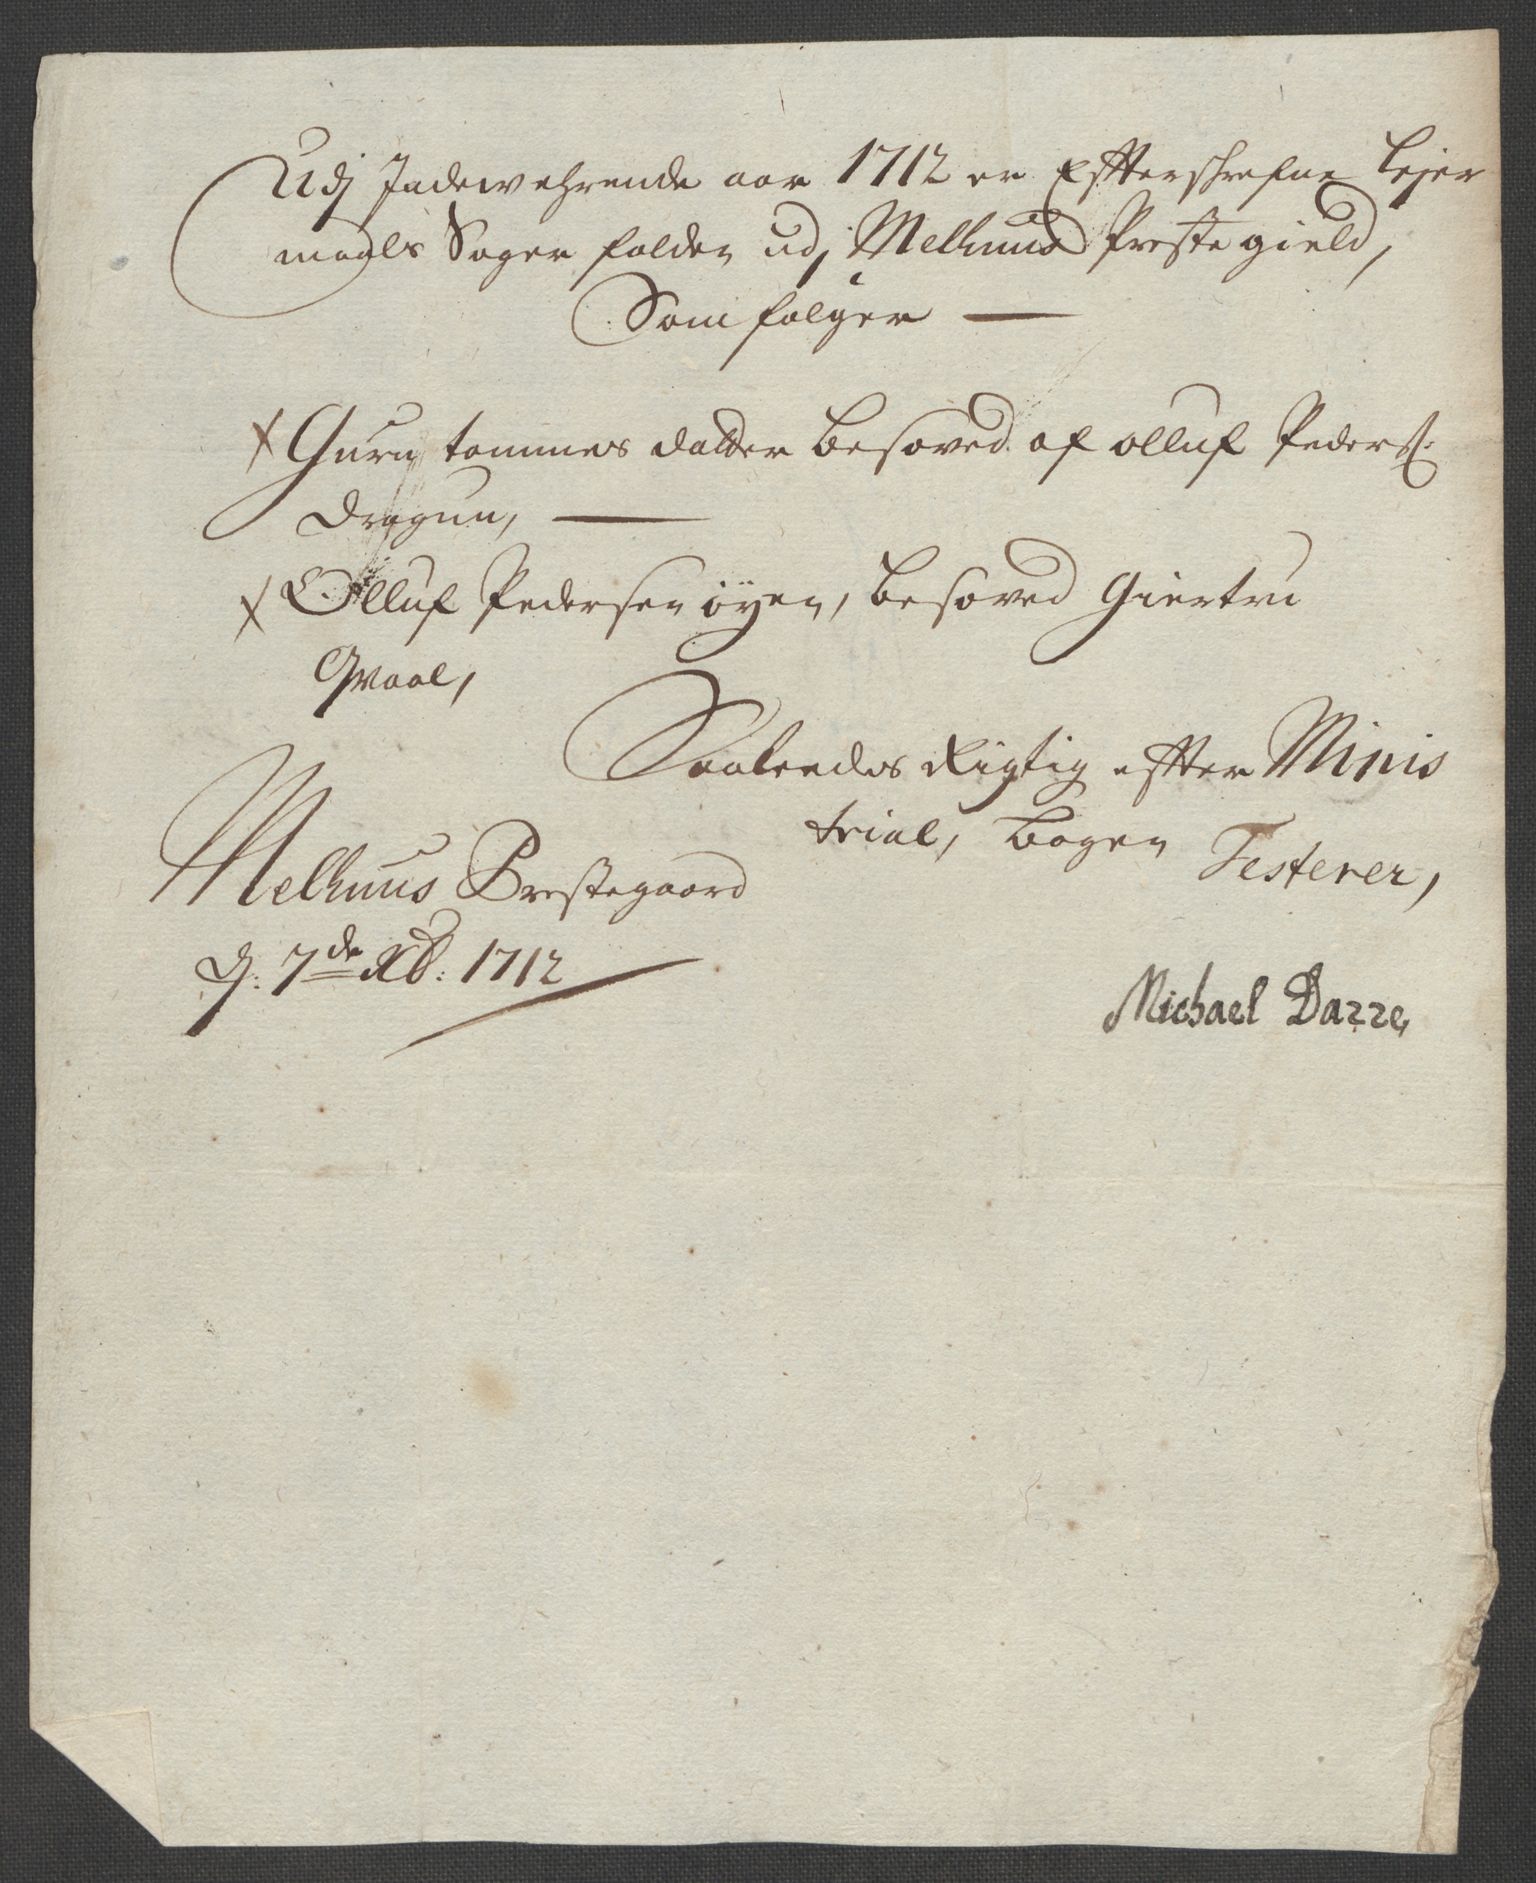 Udj Indewehrende aar 1712 er Effterschrefne Lejer
maals Sager falden udj Melhuus Prestegield,
Som følger —
Guru tommes datter besoved af olluf Peders:
Dragun, —
Olluf Pedersen øyen, besoved Giertru
Qvaal,
Saaledes Rigtig effter Minis
trial, bogen Testerer,
Melhuus Prestegaard
d: 7de Xb: 1712
Michael Darre,